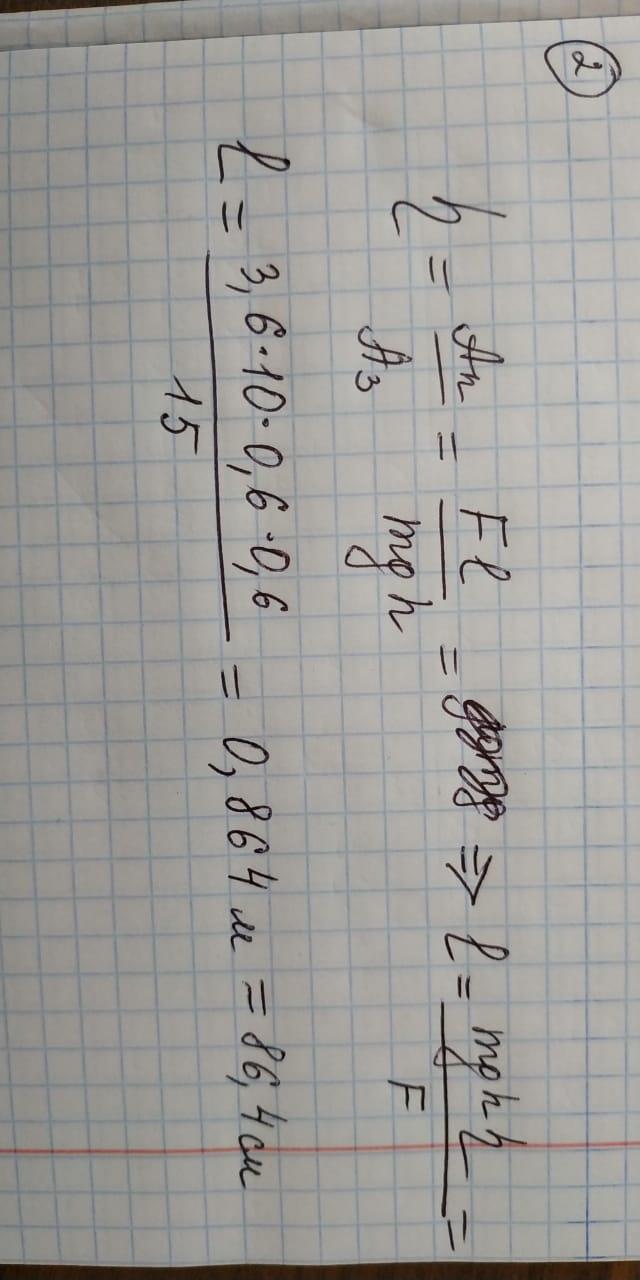 2
η = Aп/Aз = Fl/mgh = ⇒ l = mghη/F =
l = 3,6·10·0,6·0,6/15 = 0,864 м = 86,4 см